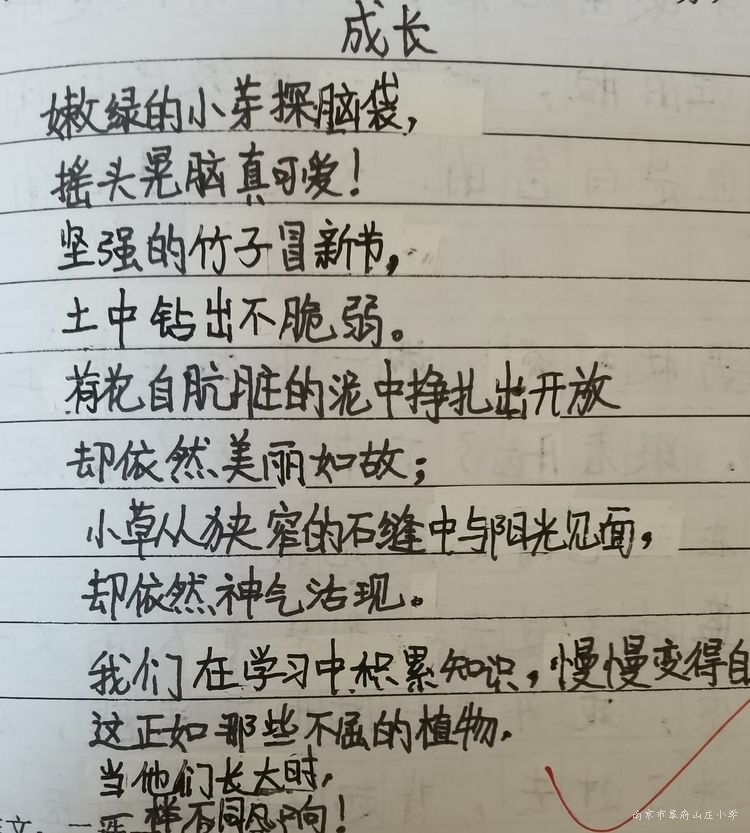 成长
嫩绿的小芽探脑袋，
摇头晃脑真可爱！
坚强的竹子冒新节，
土中钻出不脆弱。
荷花自肮脏的泥中挣扎出开放
却依然美丽如故；
小草从狭窄的石缝中与阳光见面，
却依然神气活现。
我们在学习中积累知识，慢慢变得自
这正如那些不屈的植物，
当他们长大时，
一样不同凡响！
南京市幕府山庄小学